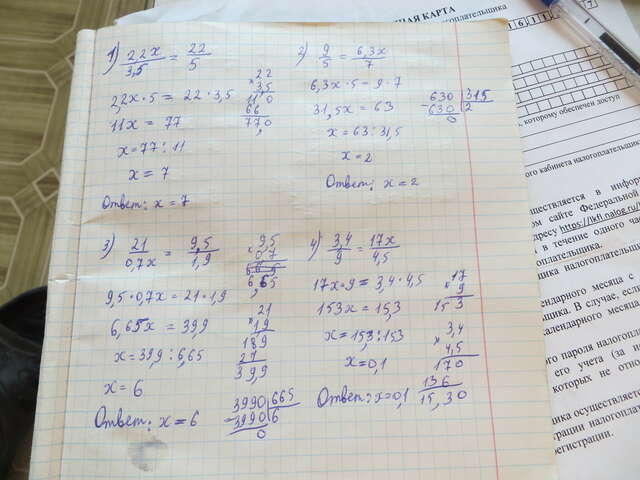 1) 22x/3,5 = 22/5
2,2x·5 = 22·3,5
11x = 77
x = 77:11
x = 7
Ответ: x = 7
22
× 3,5
110
66
77,0
2) 9/5 = 6,3x/7
6,3x·5 = 9·7
31,5x = 63
x = 63:31,5
x = 2
Ответ: x = 2
630 | 315
- 630 | 2
0
3) 21/0,7x = 9,5/1,9
9,5·0,7x = 21·1,9
6,65x = 39,9
x = 39,9:6,65
x = 6
Ответ: x = 6
9,5
× 0,7
6,65
21
× 1,9
189
21
39,9
3990 | 665
- 3990 | 6
0
4) 3,4/9 = 17x/4,5
17x·9 = 3,4·4,5
153x = 15,3
x = 15,3:153
x = 0,1
Ответ: x = 0,1
17
× 9
153
3,4
× 4,5
170
136
15,30
НАЯ КАРТА
огоплательщика
, которому обеспечен доступ
ого кабинета налогоплательщика
ществляется в инфор
ом сайте Федеральной
дресу https://lkfl.nalog.ru/
в течение одного ча
оплательщика.
ета налогоплательщика
лендарного месяца с
щика. В случае, если
календарного месяца
ого пароля налогопл
его учета (за и
которых не отно
ика осуществляется
трации налогоплат
регистрации.